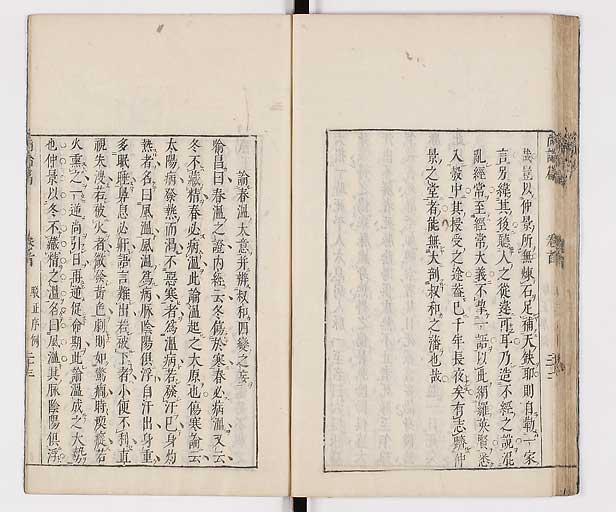 哉豈以仲景所無煉石足補天缺耶則自勒一家
言別緯其後聽人之從違可耳乃造不經之說混
亂經常至經常大義不挈一語以此網羅英賢悉
入彀中其授受之途蓋已千年長夜矣有志躋仲
景之堂者能無大剖叔和之藩也哉
論春溫大意并辨叔和四變之妄
喻昌曰春溫之證內經云冬傷於寒春必病溫又云
冬不藏精春必病溫此論溫起之大原也傷寒論云
太陽病發熱而渴不惡寒者爲溫病若發汗已身灼
熱者名曰風溫風溫爲病脈陰陽俱浮自汗出身重
多眠睡鼻息必鼾語言難出若被下者小便不利直
視失溲若被火者微發黃色劇則如驚癇時瘈瘲若
火熏之一逆尚引日再逆促命期此論溫成之大勢
也仲景以冬不藏精之溫名曰風溫其脈陰陽俱浮
卷首
駁正序例
二十三